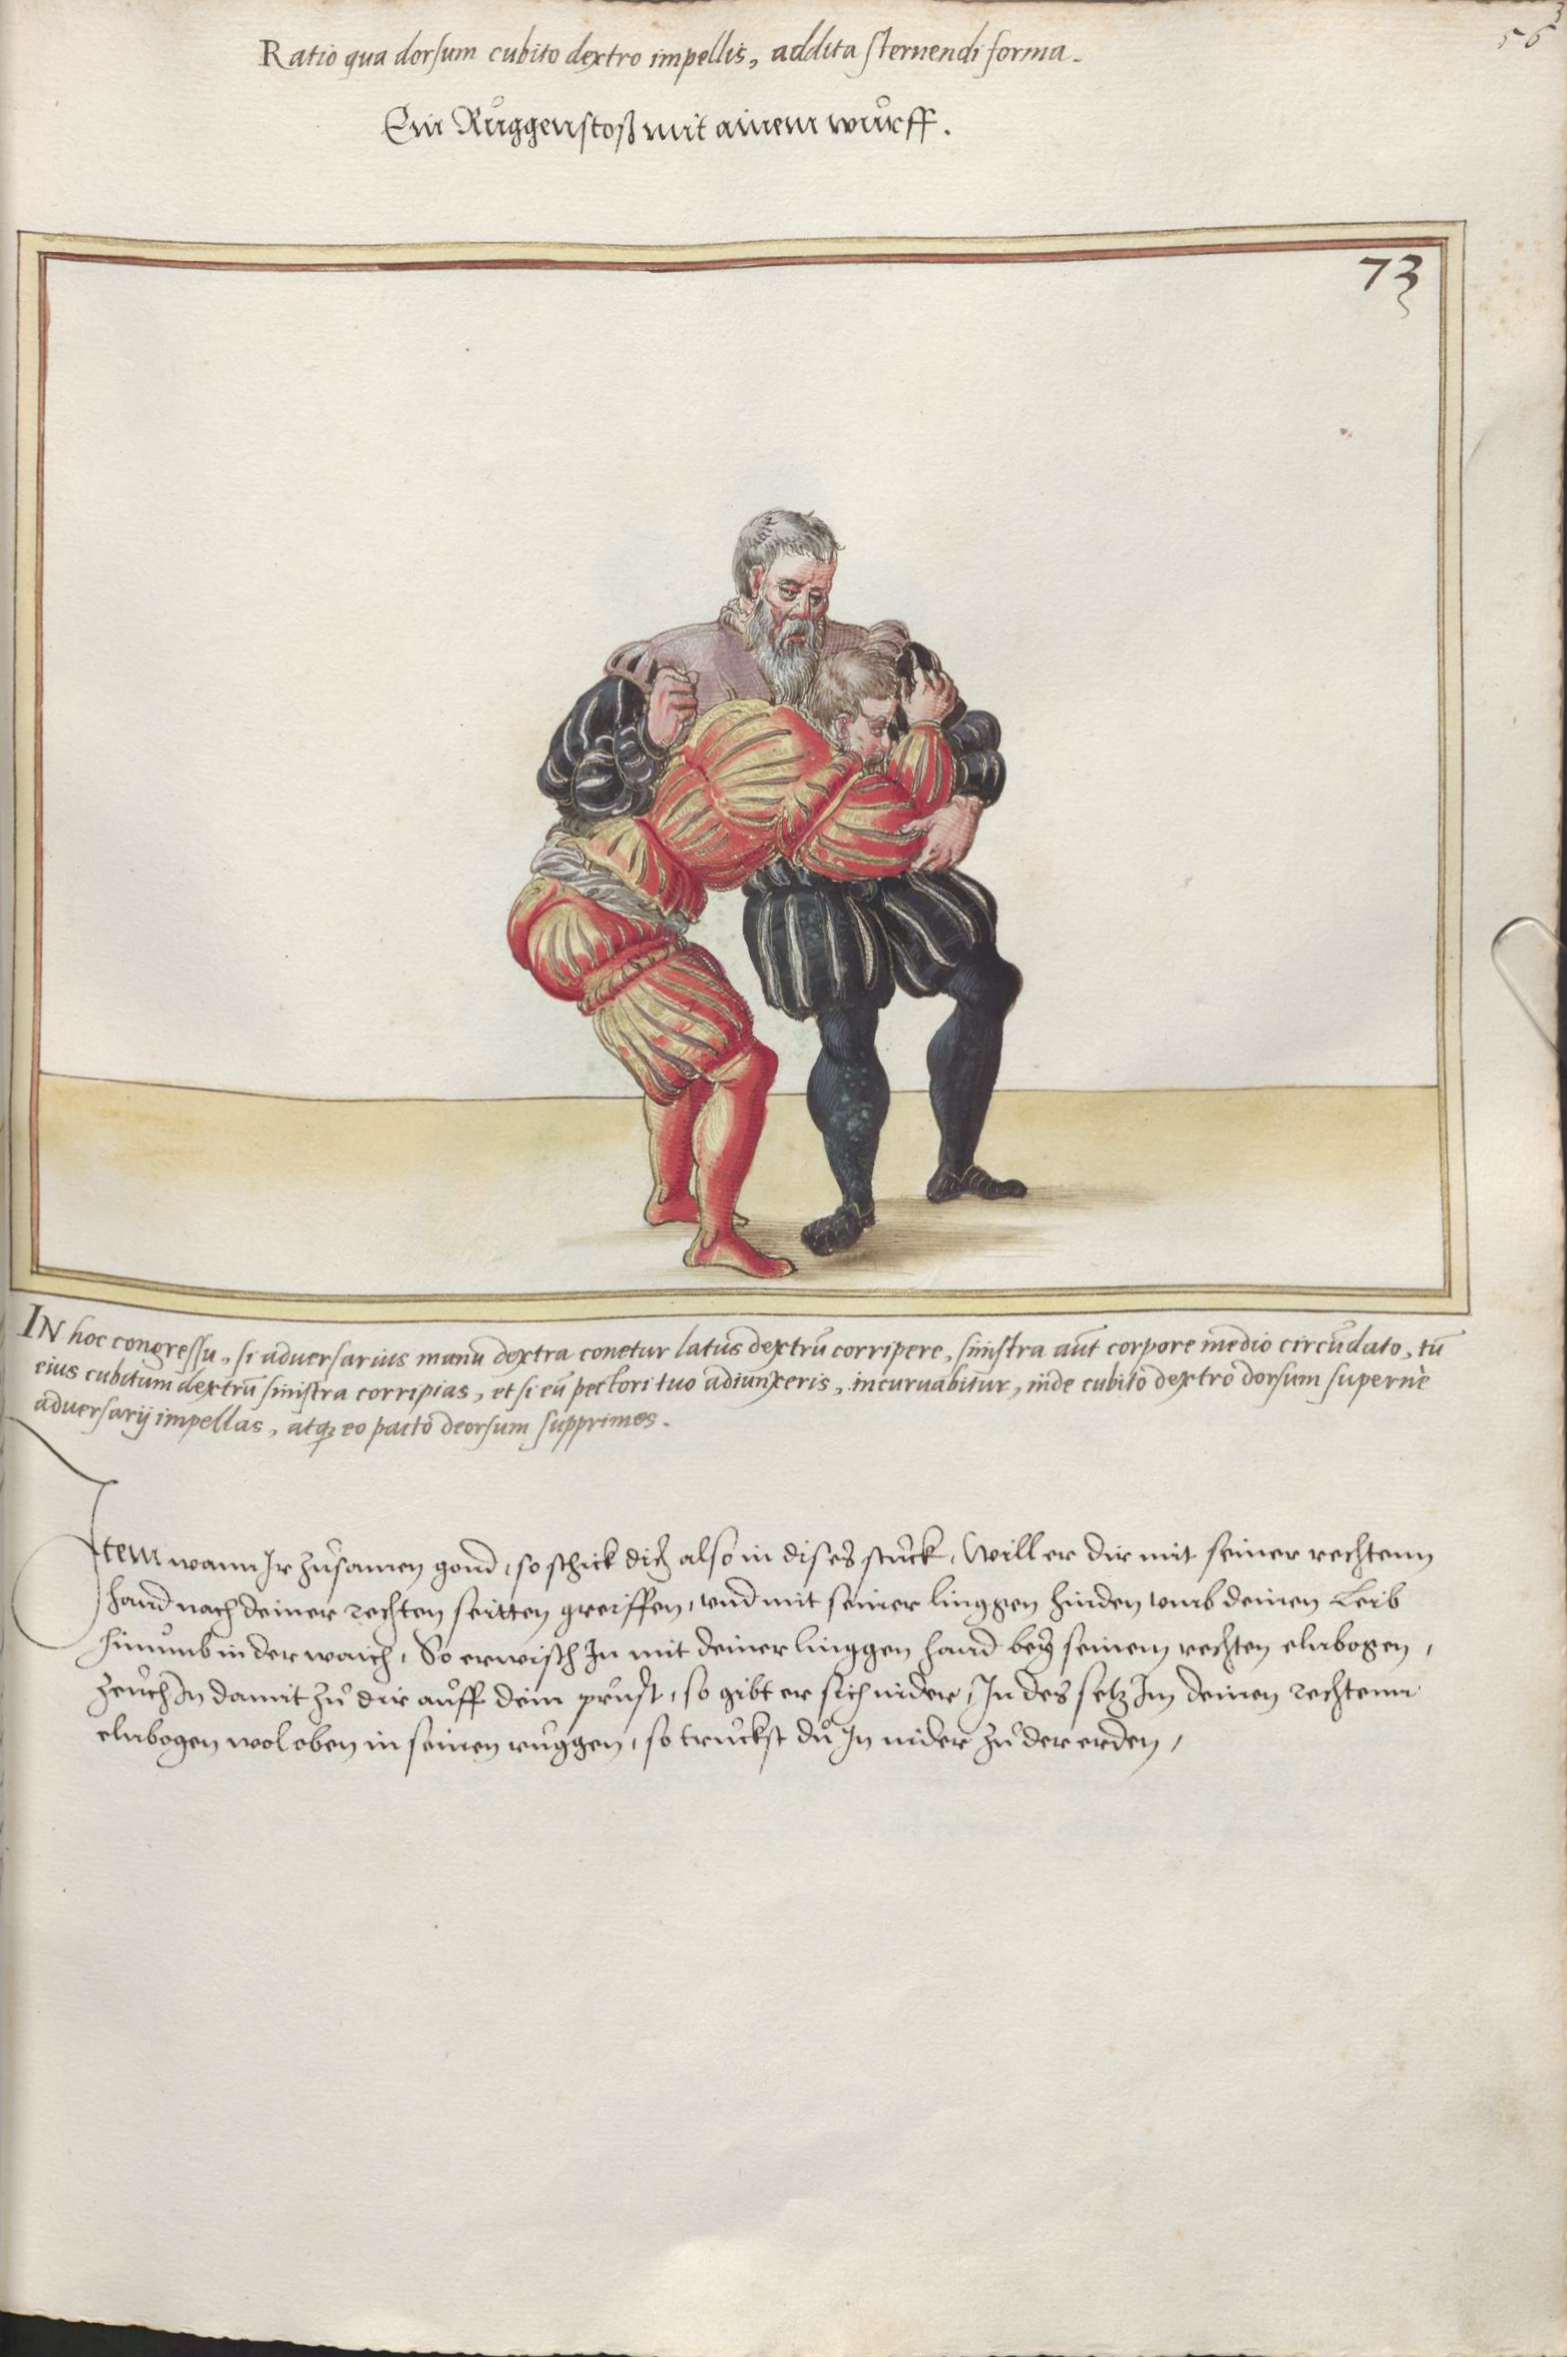 56
Ratio qua dorsum cubito dextro impellis, addita sternendi forma.
Ein Růggenstoß mit ainem wůrff.
73
IN hoc congressu, si adversarius manu dextra conetur latus dextrū corripere, sinistra aūt corpore medio circūdato, tū
eius cubitum dextrū sinistra corripias, et si eū pectori tuo adiunxeris, incurvabitur, inde cubito dextro dorsum supernè
adversarij impellas, atq; eo pacto deorsum supprimes.
Item wann Ir zůsamen gond, so schick dich also in dises stuck, Will er dir mit seiner rechtenn
hand nach deiner rechten seitten greiffen, vnd mit seiner linggen hinden vmb deinen Leib
hinumb in der waich, So erwisch In mit deiner linggen hand bey seinem rechten elnbogen,
zeuch In damit zů dir auff dein prust, so gibt er sich nider, In des setz Im deinen rechtenn
elnbogen wol oben in seinen ruggen, so truckst du In nider zů der erden,